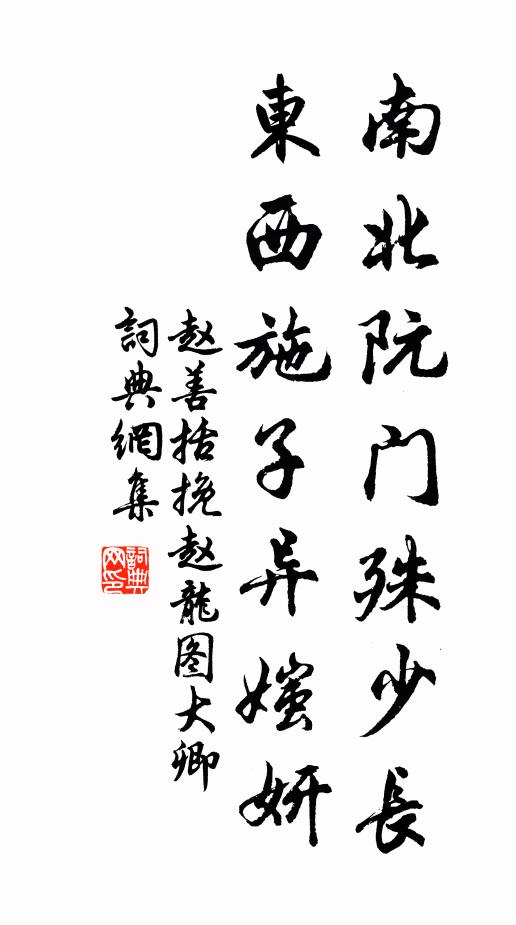 南北阮门殊少長
東西施子异媸妍
赵善括挽赵龍图大卿
詞典網集
詞典网印